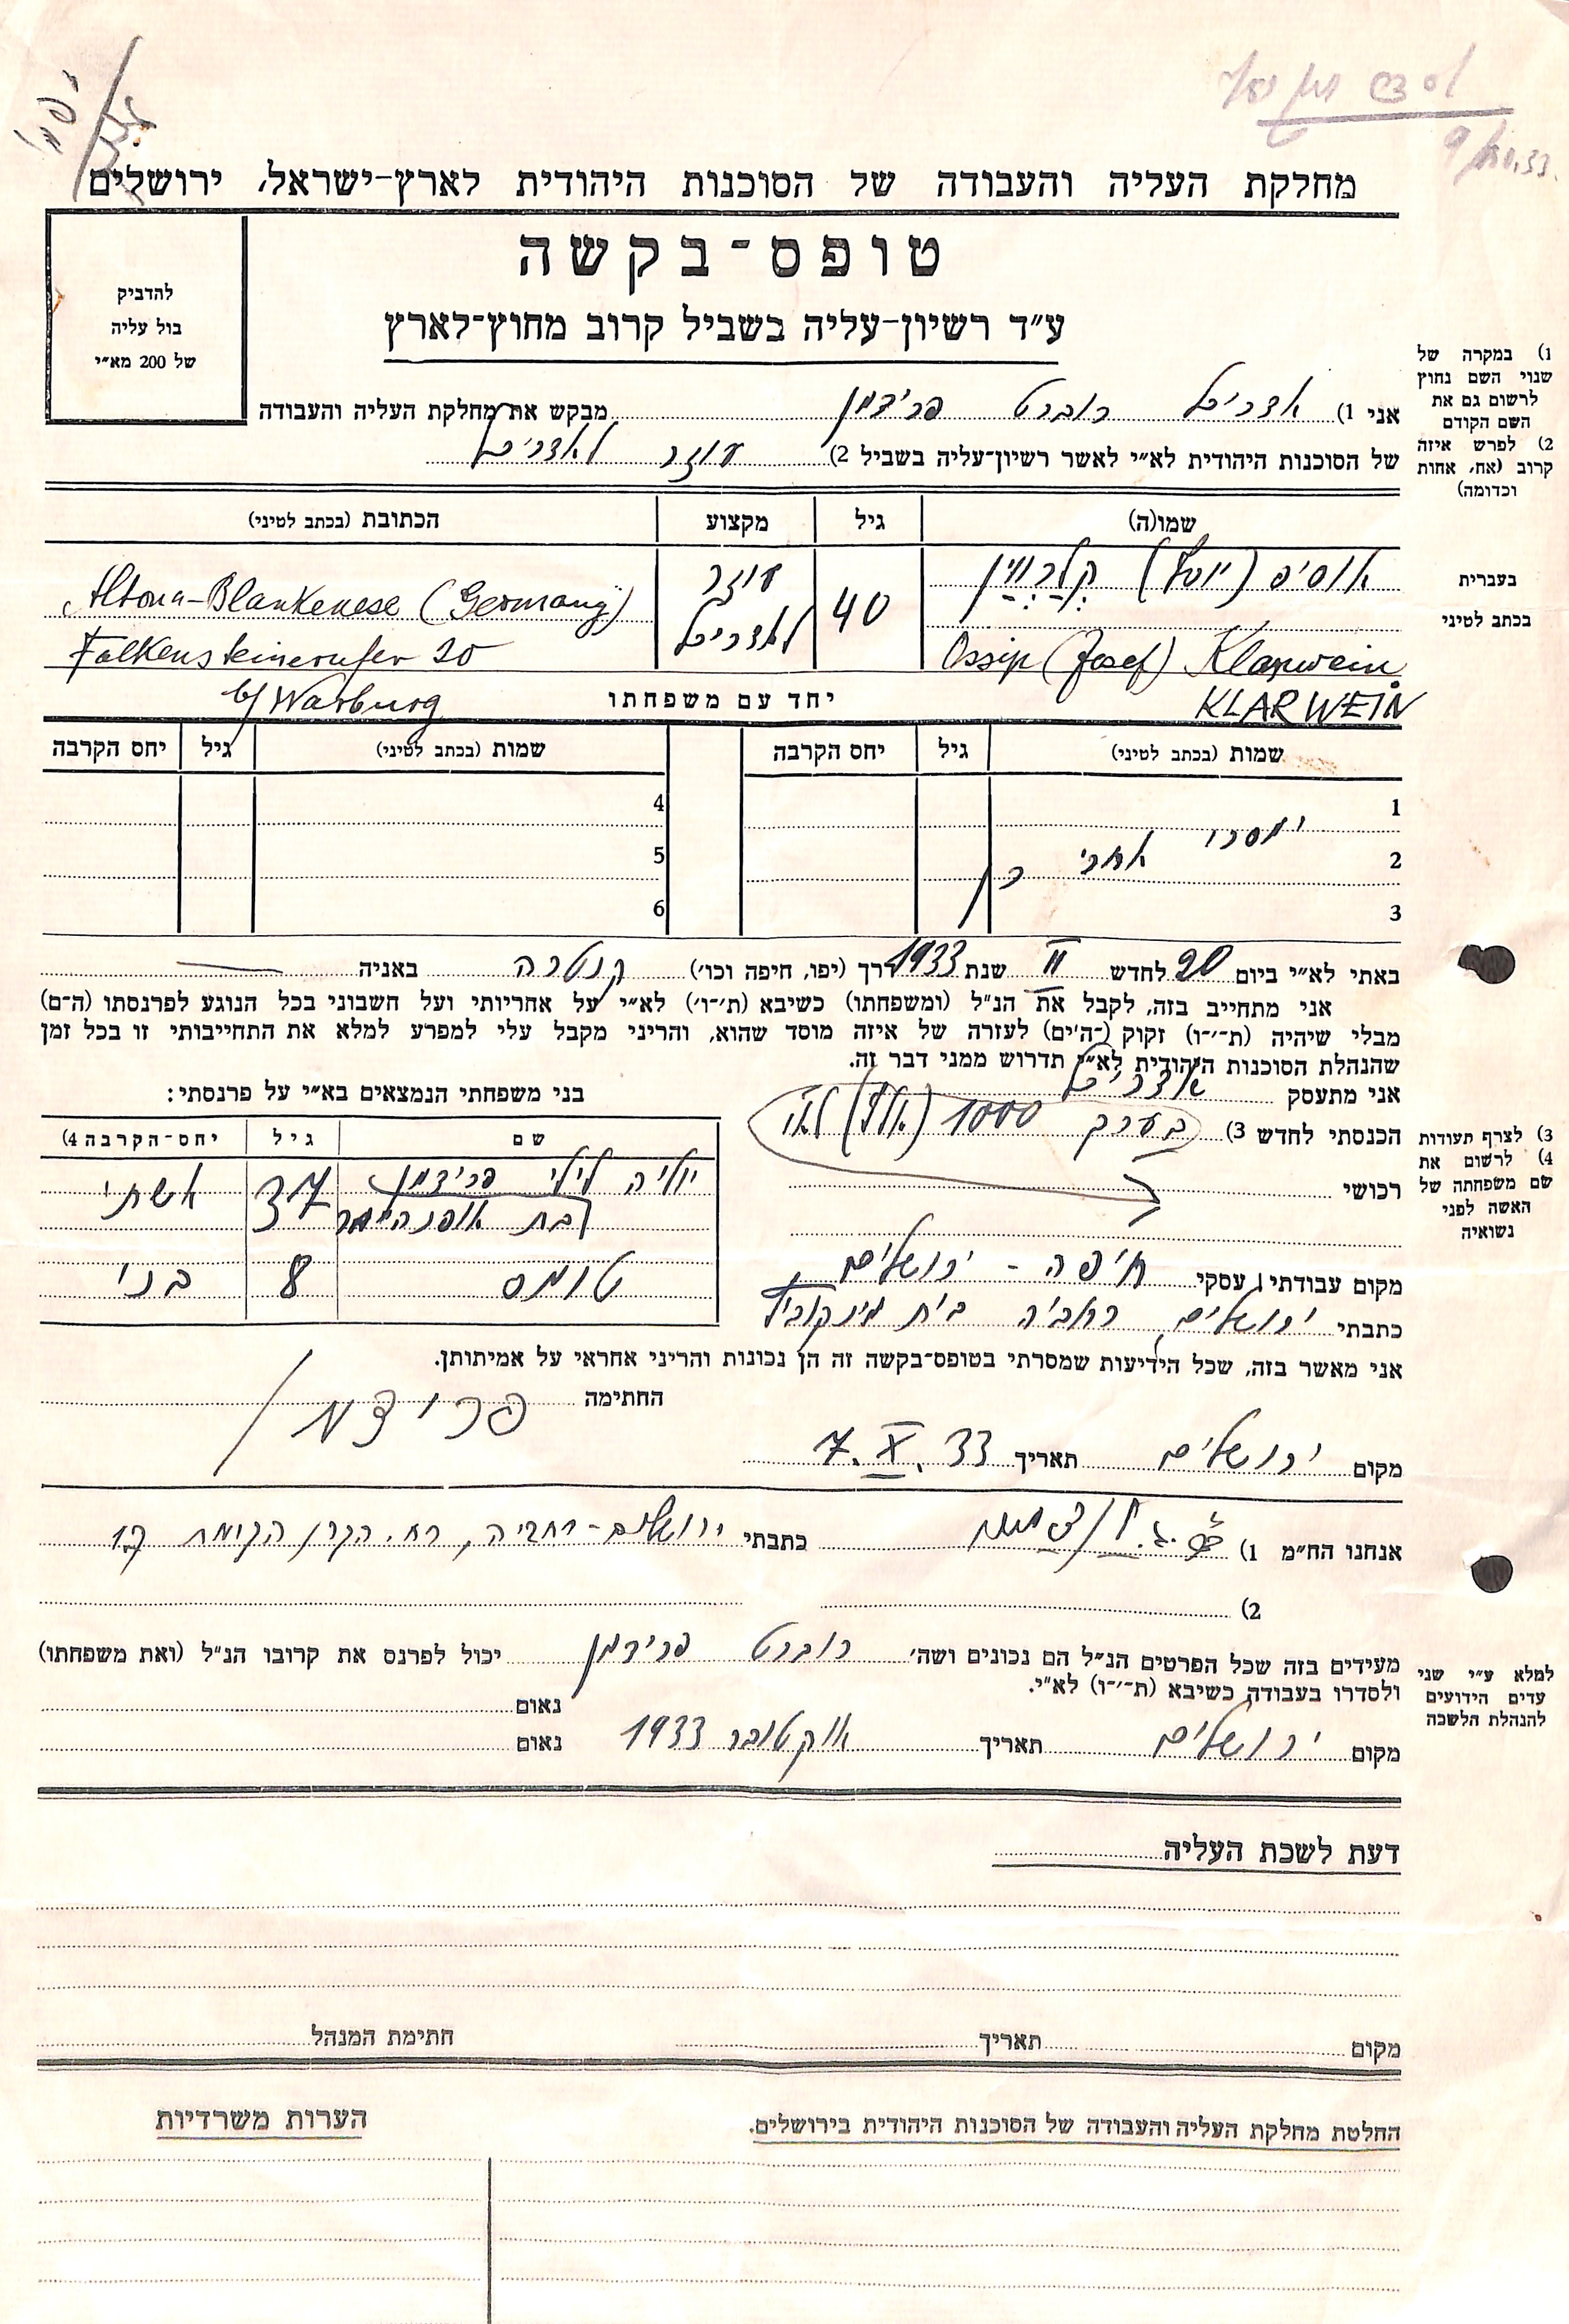 9/10.33.
מחלקת העליה והעבודה של הסוכנות היהודית לארץ-ישראל, ירושלים
להדביק
בול עליה
של 200 מא״י
טופס-בקשה
ע״ד רשיון-עליה בשביל קרוב מחוץ-לארץ
1) במקרה של
שנוי השם נחוץ
לרשום גם את
השם הקודם
2) לפרש איזה
קרוב (אח, אחות
וכדומה)
אני 1) אדריכל רוברט פרידמן מבקש את מחלקת העליה והעבודה
של הסוכנות היהודית לא״י לאשר רשיון-עליה בשביל 2) עוזר לאדריכל
שמו(ה) גיל מקצוע הכתובת (בכתב לטיני)
בעברית אוסיפ (יוסף) קלרווין 40 עוזר לאדריכל Altona-Blankenese (Germany)
בכתב לטיני Ossip (Josef) Klarwein Falkensteinerufer 20
KLARWEIN יחד עם משפחתו b/ Warburg
שמות (בכתב לטיני) גיל יחס הקרבה שמות (בכתב לטיני) גיל יחס הקרבה
1 4
ימסרו
2 אחרי כן 5
3 6
באתי לא״י ביום 20 לחדש II שנת 1933 דרך (יפו, חיפה וכו׳) קנטרה באניה —
אני מתחייב בזה, לקבל את הנ״ל (ומשפחתו) כשיבא (ת׳-ו׳) לא״י על אחריותי ועל חשבוני בכל הנוגע לפרנסתו (ה-ם)
מבלי שיהיה (ת-׳-ו) זקוק (-ה׳ים) לעזרה של איזה מוסד שהוא, והריני מקבל עלי למפרע למלא את התחייבותי זו בכל זמן
שהנהלת הסוכנות היהודית לא״י תדרוש ממני דבר זה.
אני מתעסק אדריכל
הכנסתי לחדש 3) בערך 1000 (אלף) לא״י
רכושי
3) לצרף תעודות
4) לרשום את
שם משפחתה של
האשה לפני
נשואיה
מקום עבודתי / עסקי חיפה - ירושלים
כתבתי ירושלים, רחביה בית
בני משפחתי הנמצאים בא״י על פרנסתי:
שם גיל יחס-הקרבה 4)
יוליה לילי פרידמן 37 אשתי
לבת אופנהיימר
טומס 8 בני
אני מאשר בזה, שכל הידיעות שמסרתי בטופס-בקשה זה הן נכונות והריני אחראי על אמיתותן.
החתימה פרידמן
מקום ירושלים תאריך 7. X. 33
אנחנו הח״מ 1) כתבתי ירושלים-רחביה, רח. הקרן הקימת 17
2)
מעידים בזה שכל הפרטים הנ״ל הם נכונים ושה׳ רוברט פרידמן יכול לפרנס את קרובו הנ״ל (ואת משפחתו)
ולסדרו בעבודה כשיבא (ת-׳-ו) לא״י.
נאום
מקום ירושלים תאריך אוקטובר 1933 נאום
למלא ע״י שני
עדים הידועים
להנהלת הלשכה
דעת לשכת העליה
מקום תאריך חתימת המנהל
החלטת מחלקת העליה והעבודה של הסוכנות היהודית בירושלים.
הערות משרדיות